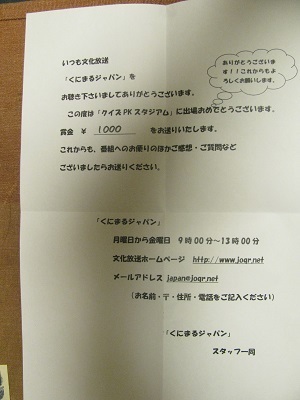 いつも文化放送
「くにまるジャパン」を
お聴き下さいましてありがとうございます。
ありがとうございま
す！！これからもよ
ろしくお願いします。
この度は「クイズPKスタジアム」に出場おめでとうございます。
賞金 ￥ 1000 をお送りいたします。
これからも、番組へのお便りのほかご感想・ご質問など
ございましたらお送りください。
「くにまるジャパン」
月曜日から金曜日 9時00分～13時00分
文化放送ホームページ http://www.joqr.net
メールアドレス japan@joqr.net
（お名前・〒・住所・電話をご記入ください）
「くにまるジャパン」
スタッフ一同